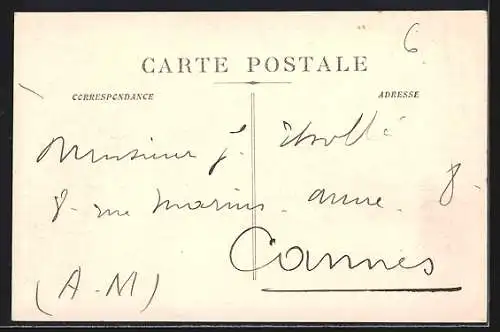 6
CARTE POSTALE
CORRESPONDANCE ADRESSE
Monsieur J.
8 - rue Marius - Aune - 8 -
Cannes
(A-M)